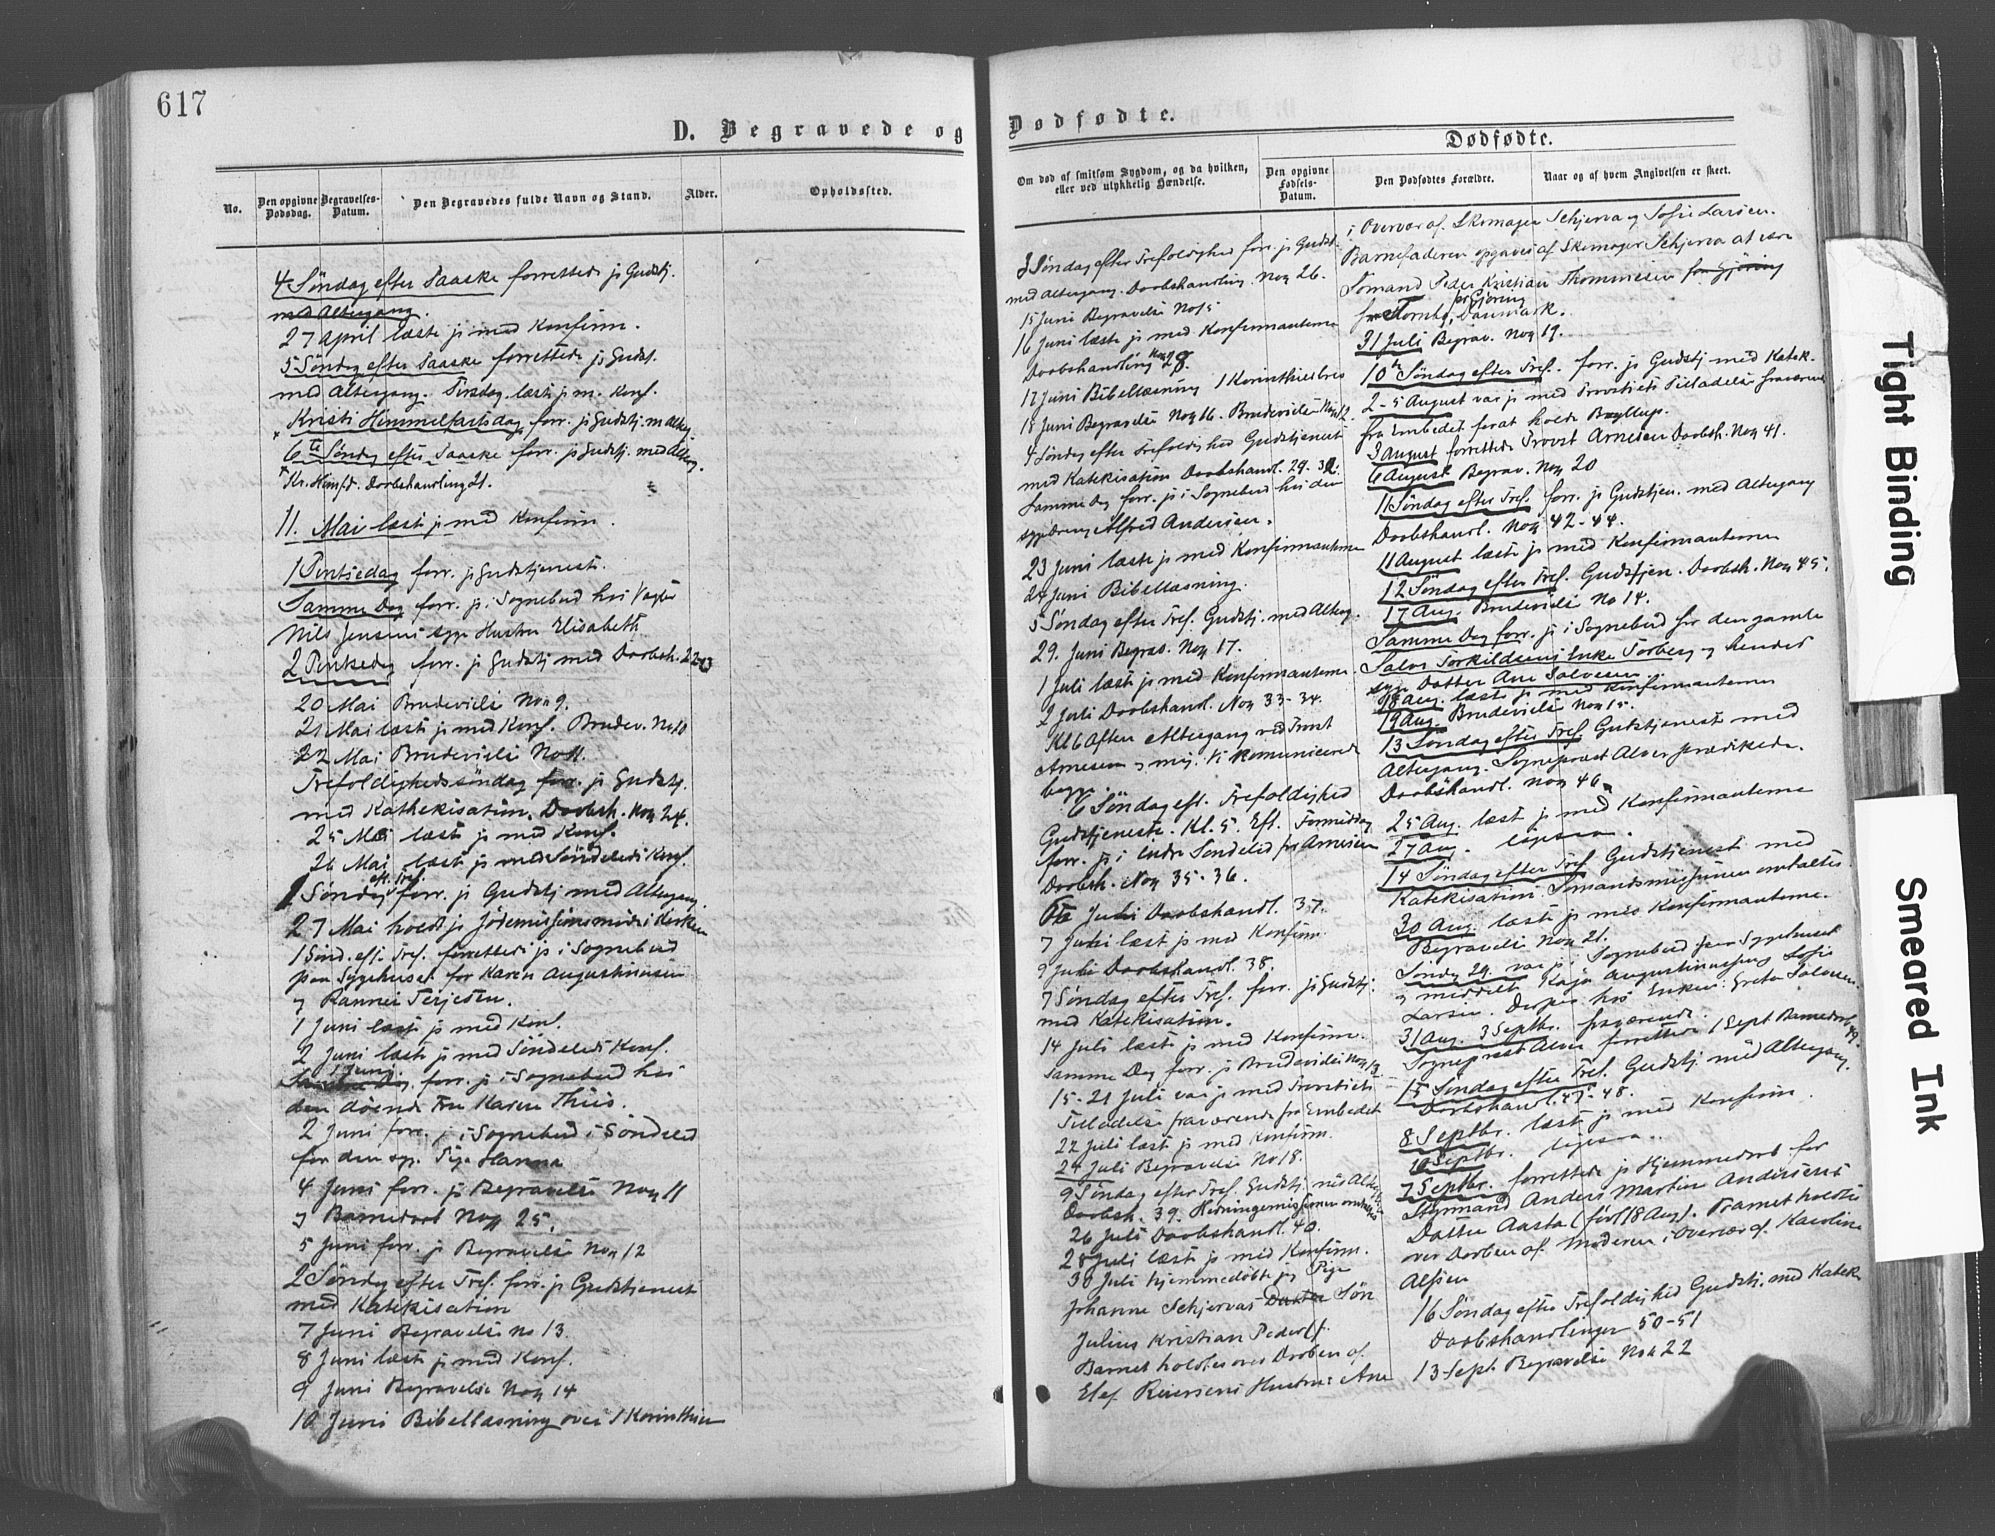 617
D. Begravede og
No.
Den opgivne Dødsdag.
Begravelses-Datum.
Den Begravedes fulde Navn og Stand.
Alder.
Opholdssted.
4 Søndag efter Paaske forrettede jeg Gudstj.
med Altergang.
27 April læste jeg med Konfirm.
5 Søndag efter Paaske forrettede jeg Gudst.
med Altergang. Tirsdag læst jeg m. Konf.
Kristi Himmelfartsdag forr. jeg Gudstj. m Alterg.
6te Søndag efter Paaske forr. jeg Gudstj. med Alterg.
Kr. Himfd. Daabshandling 21.
11. Mai læst jeg med Konfirm.
1 Pintsedag forr. jeg Gudstjeneste.
Samme Dag forr. jeg i Sognebud hos
Nils Jensens syge Hustru Elisabeth
2 Pintsedag forr. jeg Gudstj med Daabsh. 22-23
20 Mai Brudevielse No 9.
21 Mai læst jeg med Konf. Brudev. No 10
22 Mai Brudevielse No 11.
Trefoldighedssøndag forr. jeg Gudstj.
med Kathekisation. Daabsh. No 24.
25 Mai læst jeg med Konf.
26 Mai læst jeg med Søndeleds Konf.
1 Søndag eft. Tref. forr. jeg Gudstj med Altergang.
27 Mai holdt jeg Jødemissionsmøde i Kirken
1 Sønd. eft. Tref. forrettede jeg i Sognebud
paa Sygehuset for Karen Augustinusen
og Rannei Terjesen.
1 Juni læst jeg med Konf.
2 Juni læst jeg med Søndeleds Konf.
1 Juni forr. jeg i Sognebud hos
den døende Fru Karen Thiis.
2 Juni forr. jeg i Sognebud i Søndeled
for den syge Pige Hanna
4 Juni forr. jeg Begravelse No 11
og Barnedaab No 25.
5 Juni forr. jeg Begravelse No 12
2 Søndag efter Tref. forr. jeg Gudstjeneste
med Katekisation
7 Juni Begravelse No 13.
8 Juni læst jeg med Konf.
9 Juni Begravelse No 14
10 Juni Bibellæsning over 1 Korinthier
Dødfødte.
Om død af smitsom Sygdom, og da hvilken, eller ved ulykkelig Hændelse.
Dødfødte.
Den opgivne Fødsels-Datum.
Den Dødfødtes Forældre.
Naar og af hvem Angivelsen er skeet.
3 Søndag efter Trefoldighed forr. jeg Gudst.
med Altergang. Daabshandling. No 26.
15 Juni Begravelse No 15
16 Juni læste jeg med Konfirmanterne
Daabshandling No 28.
17 Juni Bibellæsning 1 Korinthierbrev
18 Juni Begravelse No 16. Brudevielse No 12.
4 Søndag efter Trefoldighed Gudstjeneste
med Katekisation Daabshandl. 29-32.
Samme Dag forr. jeg i Sognebud hos den
syge Dreng Alfred Andersen.
23 Juni læste jeg med Konfirmanterne
24 Juni Bibellæsning.
5 Søndag efter Tref. Gudstj. med Alterg.
29. Juni Begrav. No 17.
1 Juli læst jeg med Konfirmanterne
2 Juli Daabshandl. No 33-34.
Kl 6 Aften Altergang ved Provst
Arnesen og mig. Vi komunicerede
begge.
6 Søndag eft. Trefoldighed
Gudstjeneste. Kl. 5. Eft. Formiddag
forr. jeg i Indre Søndeled for Arnesen
Daabsh. No 35-36.
6te Juli Daabshandl. 37.
7 Juli læst jeg med Konfirm.
9 Juli Daabshandl. 38.
7 Søndag efter Tref. forr. jeg Gudstj.
med Katekisation.
14 Juli læst jeg med Konfirm.
Samme Dag forr. jeg Brudevielse No 13
15-21 Juli var jeg med Provstiets
Tilladelse fraværende fra Embedet
22 Juli læst jeg med Konfirm.
24 Juli Begravelse No 18.
9 Søndag efter Tref. Gudstj. med Alterg.
Daabsh. 39. Hedningemissionen omtaltes
26 Juli Daabshandl. 40.
28 Juli læst jeg med Konfirm.
30 Juli hjemmedøbte jeg Pige
Johanne Schjervas Datter Søn
Julius Kristian Peder
Barnet holdtes over Daaben af
Elef Reiersens Hustru: Ane
i Overvær af. Skomager Schjerva og Sofie Larsen.
Barnefaderen opgaves af Skomager Schjerva at være
Sømand Peder Kristian Thommesen for Gjøring
fra Tornby, pr Gjøring Danmark.
31 Juli Begrav. No 19.
10de Søndag efter Tref. forr. jeg Gudstj med Katek.
2-5 August var jeg med Provstiets Tilladelse fraværende
fra Embedet forat holde Bryllup.
3 August forrettede Provst Arnesen Daabsh. No 41.
6 August Begrav. No 20
11 Søndag efter Tref. forr. jeg Gudstjen. med Altergang
Daabshandl. No 42-44.
11 August læst jeg med Konfirmanterne
12 Søndag efter Tref. Gudstjen. Daabsh. No 45.
17 Aug. Brudevielse No 14.
Samme Dag forr. jeg i Sognebud for den gamle
Salve Torkildsens Enke Torberg og hendes
syge Datter Ane Salvesen.
18 Aug. læst jeg med Konfirmanterne
19 Aug. Brudevielse No 15.
13 Søndag efter Tref. Gudstjeneste med
Altergang. Sognepræst Alver prædikede.
Daabshandl. No 46
25 Aug. læst jeg med Konfirmanterne
27 Aug. ligesaa.
14 Søndag efter Tref Gudstjeneste med
Katekisation. Sømandsmissionen omtaltes.
30 Aug. læst jeg med Konfirmanterne.
Begravelse No 21.
Søndag 29. var jeg i Sognebud paa Sygehuset
og meddelte Kaja Augustinusen og Sofie
Larsen. Derpaa hos Enken Greta Salvesen.
31 Aug. 3 Septbr. fraværende.
Sognepræst Alver forrettede 1 Sept Barnedaab 49.
15 Søndag efter Tref. Gudstj. med Altergang
Daabshandl. 47-48.
8 Septbr. læst jeg med Konfirm.
10 Septbr. ligesaa.
7 Septbr. forrettede jeg Hjemmedaab for
Styrmand Anders Martin Andersens
Datter Aasta (født 18 Aug). Barnet holdtes
over Daaben af Moderen i Overvær af. Karoline
Alfsen
16 Søndag efter Trefoldighed Gudstj. med Katek
Daabshandlinger 50-51
13 Sept. Begravelse No 22
Tight Binding
Smeared Ink